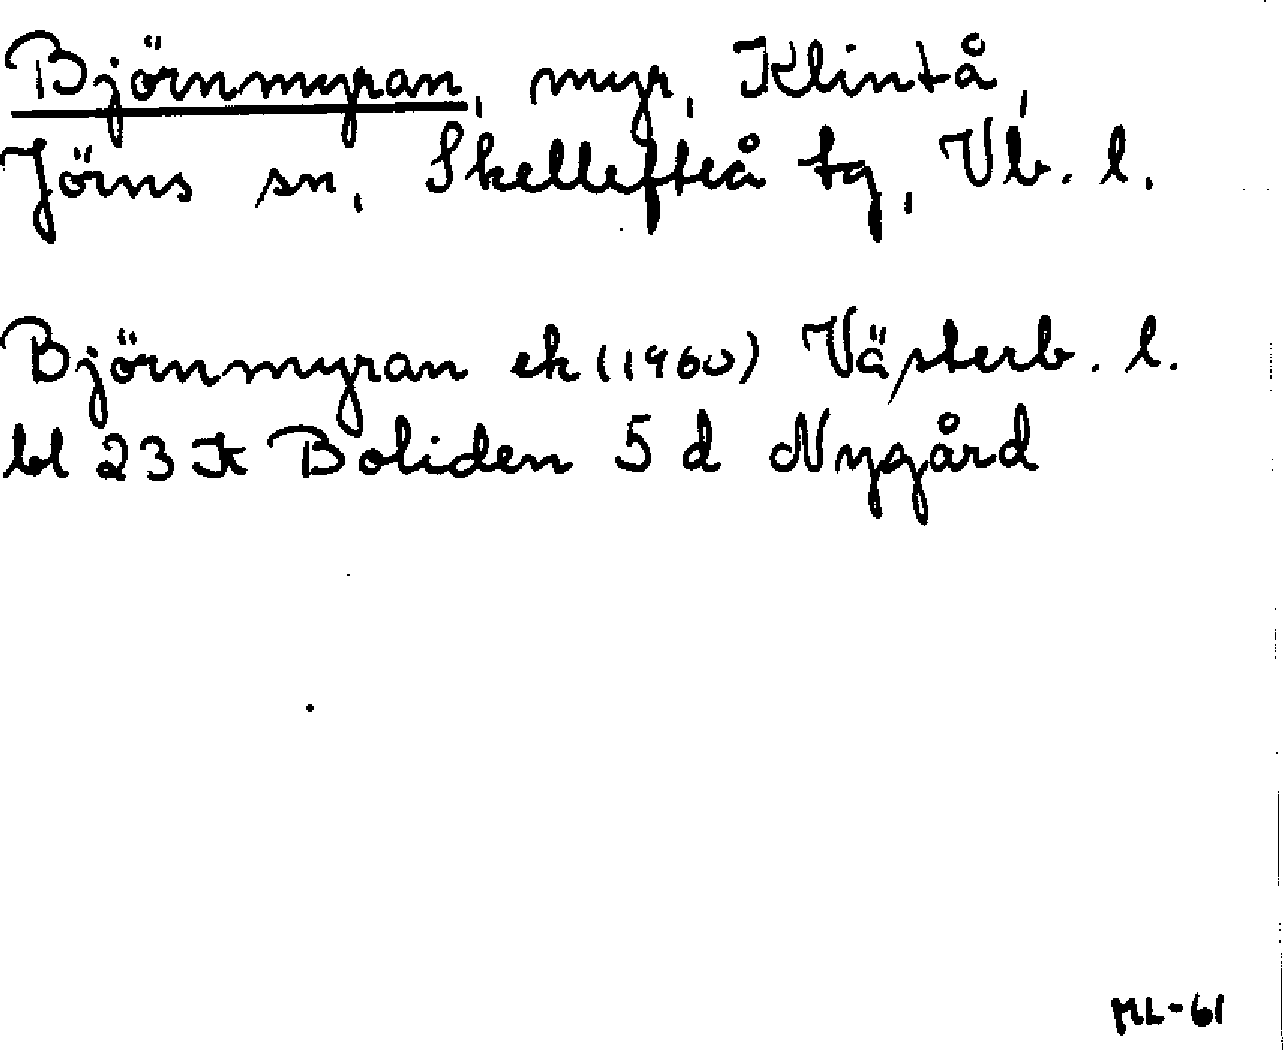 Björnmyran, myr, Klintå,
Jörns sn, Skellefteå tg, Vb. l.
Björnmyran ek (1960) Västerb. l.
bl 23 K Boliden 5 d Nygård
ML-61